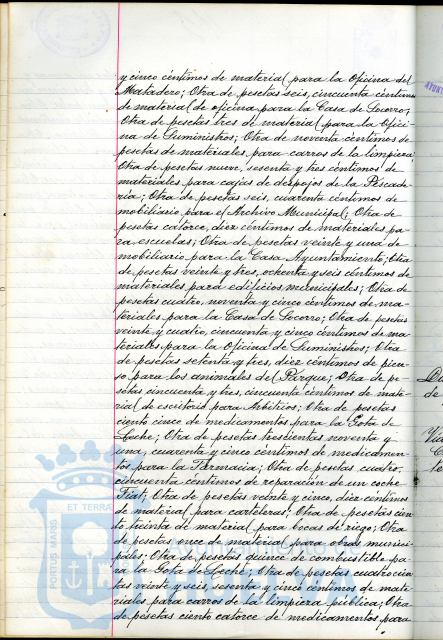 y cinco céntimos de material para la Oficina del
Matadero; Otra de pesetas seis, cincuenta céntimos
de material de oficina para la Casa de Socorro;
Otra de pesetas tres de material para la Ofici-
na de Suministros; Otra de noventa céntimos de
pesetas de materiales para carros de la limpieza
Otra de pesetas nueve, sesenta y tres céntimos de
materiales para cajas de despojos de la Pescade-
ría; Otra de pesetas seis, cuarenta céntimos de
mobiliario para el Archivo Municipal; Otra de
pesetas catorce, diez céntimos de materiales pa-
ra escuelas; Otra de pesetas veinte y una de
mobiliario para la Casa Ayuntamiento; Otra
de pesetas veinte y tres, ochenta y seis céntimos de
materiales para edificios municipales; Otra de
pesetas cuatro, noventa y cinco céntimos de ma-
teriales para la Casa de Socorro; Otra de pesetas
veinte y cuatro, cincuenta y cinco céntimos de ma-
teriales para la Oficina de Suministros; Otra
de pesetas setenta y tres, diez céntimos de pien-
so para los animales del Parque; Otra de pe-
setas cincuenta y tres, cincuenta céntimos de mate-
rial de escritorio para Arbitrios; Otra de pesetas
ciento cinco de medicamentos para la Gota de
Leche; Otra de pesetas trescientas noventa y
una, cuarenta y cinco céntimos de medicamen-
tos para la Farmacia; Otra de pesetas cuatro,
cincuenta céntimos de reparación de un coche
Fiat; Otra de pesetas veinte y cinco, diez céntimos
de material para carteleras; Otra de pesetas cien-
to treinta de material para bocas de riego; Otra
de pesetas once de material para obras munici-
pales; Otra de pesetas quince de combustible pa-
ra la Gota de Leche; Otra de pesetas cuatrocien-
tas veinte y seis, sesenta y cinco céntimos de mate-
riales para carros de la limpieza pública; Otra
de pesetas ciento catorce de medicamentos para
ET TERRA
PORTUS MARIS